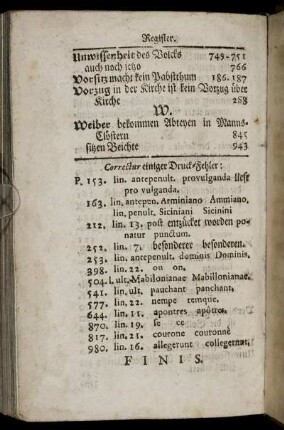 Register.
Unwissenheit des Volcks 749-751
auch noch jetzo 766
Vorsitz macht kein Pabstthum 186.187
Vorzug in der Kirche ist kein Vorzug über
Kirche 288
W.
Weiber bekommen Abteyen in Manns-
Clöstern 845
sitzen Beichte 943
Correctur einiger Druck-Fehler:
P. 153. lin. antepenult. provulganda lese
pro vulganda.
163. lin. antepen. Arminiano Ammiano,
lin. penult. Siciniani Sicinini
212. lin. 13. post entzücket worden po-
natur punctum.
252. lin. 7. besonderer besonderen.
253. lin. antepenult. dominis Dominis.
398. lin. 22. ou on.
504. l. ult. Mabilonianae Mabillonianae.
541. lin. ult. pauchant panchant.
577. lin. 22. nempe remque.
644. lin. 11. apontres apôtres.
870. lin. 19. se ce
817. lin. 21. courone couronne
980. lin. 16. allegerunt collegerunt.
FINIS.